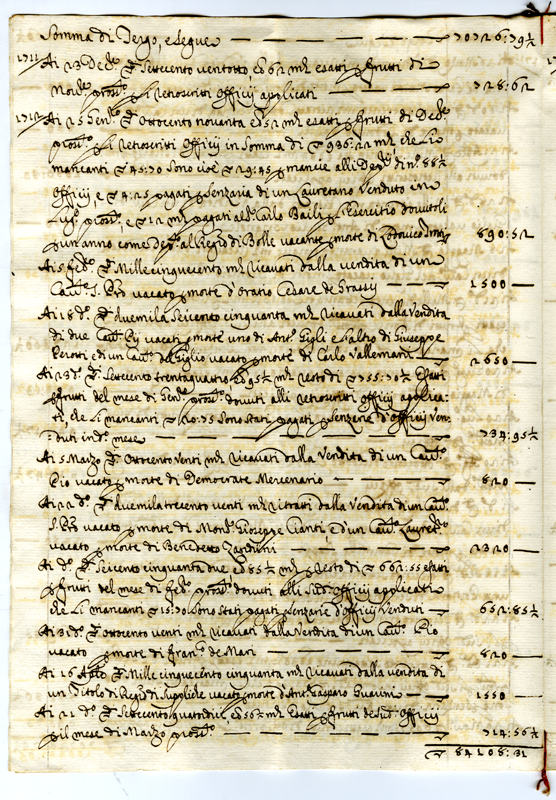 Somma di Tergo, e Segue — 70726:79½
1711 Ai 23 Decᵉ ∇ Settecento ventotto, e 62 mᵗᵃ esatti p frutti di
Novᵉ prosᵒ p li retroscritti Officij applicati — 728:62
1712 Ai 25 Genᵒ ∇ Ottocento novanta e 52 mᵗᵃ esatti p frutti di Decᵉ
prosᵒ p li retroscritti Officij in Somma di ∇ 936:22 mᵗᵃ che li
mancanti ∇ 45:70 Sono cioè ∇ 29:45 p mancie alli
Officij, e ∇ 4:25 pagati p Senzaria di un Lauretano Venduto in
prosᵒ, e ∇ 12 mᵗᵃ pagati al Sᵉ Carlo Baili p l'esercitio dovutoli
p un anno come al Regᵒ di Bolle vacante p morte di — 890:52
Ai 5 Febᵒ ∇ Mille cinquecento mᵗᵃ ricavati dalla vendita di un
Cavᵉ S. Pᵒ vacato p morte d'Oratio Cesare de Grassy — 1500 —
Ai 18 dᵒ ∇ duemila Seicento cinquanta mᵗᵃ ricavati dalla Vendita
di due Cavᵉ Pij vacati p morte uno di Antᵒ Gigli e l'altro di Giuseppe
Perotti e di un Cavᵉ del Giglio vacato p morte di Carlo Vallemani — 2650 —
Ai 23 dᵒ ∇ Settecento trentaquattro e 95½ mᵗᵃ resto di ∇ 755:70½ Esatti
p frutti del mese di Genᵒ prosᵒ dovuti alli retroscritti officij applica-
ti, che li mancanti ∇ 20:75 Sono Stati pagati p Senzarie d'officij Ven-
duti in dᵒ mese — 734:95½
Ai 5 Marzo ∇ Ottocento Venti mᵗᵃ ricavati dalla Vendita di un Cavᵉ
Pio vacato p morte di Democrate Mercenario — 820 —
Ai 22 dᵒ ∇ duemila trecento venti mᵗᵃ ritratti dalla Vendita di un Cavᵉ
S. Pᵒ vacato p morte di Monsᵉ Gioseppe Cianti, e d'un Cavᵉ Lauretᵒ
vacato p morte di Benedetto Zardini — 2320 —
Ai dᵒ ∇ Seicento cinquanta due e 85½ mᵗᵃ p resto di ∇ 662:55 esatti
p frutti del mese di Febᵒ prosᵒ dovuti alli Sudᵗⁱ Officij applicati
che li mancanti ∇ 15:70 Sono Stati pagati p Senzarie d'officij Venduti — 652:85½
Ai 3 dᵒ ∇ ottocento venti mᵗᵃ ricavati dalla Vendita di un Cavᵉ Pio
vacato p morte di Franᶜᵒ de Mari — 820 —
Ai 16 Aple ∇ Mille cinquecento cinquanta mᵗᵃ ricavati dalla vendita di
un Titolo di Regᵒ di Suppliche vacato p morte d'Antᵒ Gasparo Guarini — 1550 —
Ai 21 dᵒ ∇ Settecento quatordici e 56½ mᵗᵃ Esatti p frutti de Sudᵗⁱ Officij
p il mese di Marzo prosᵒ — 714:56½
∇ 84108:31